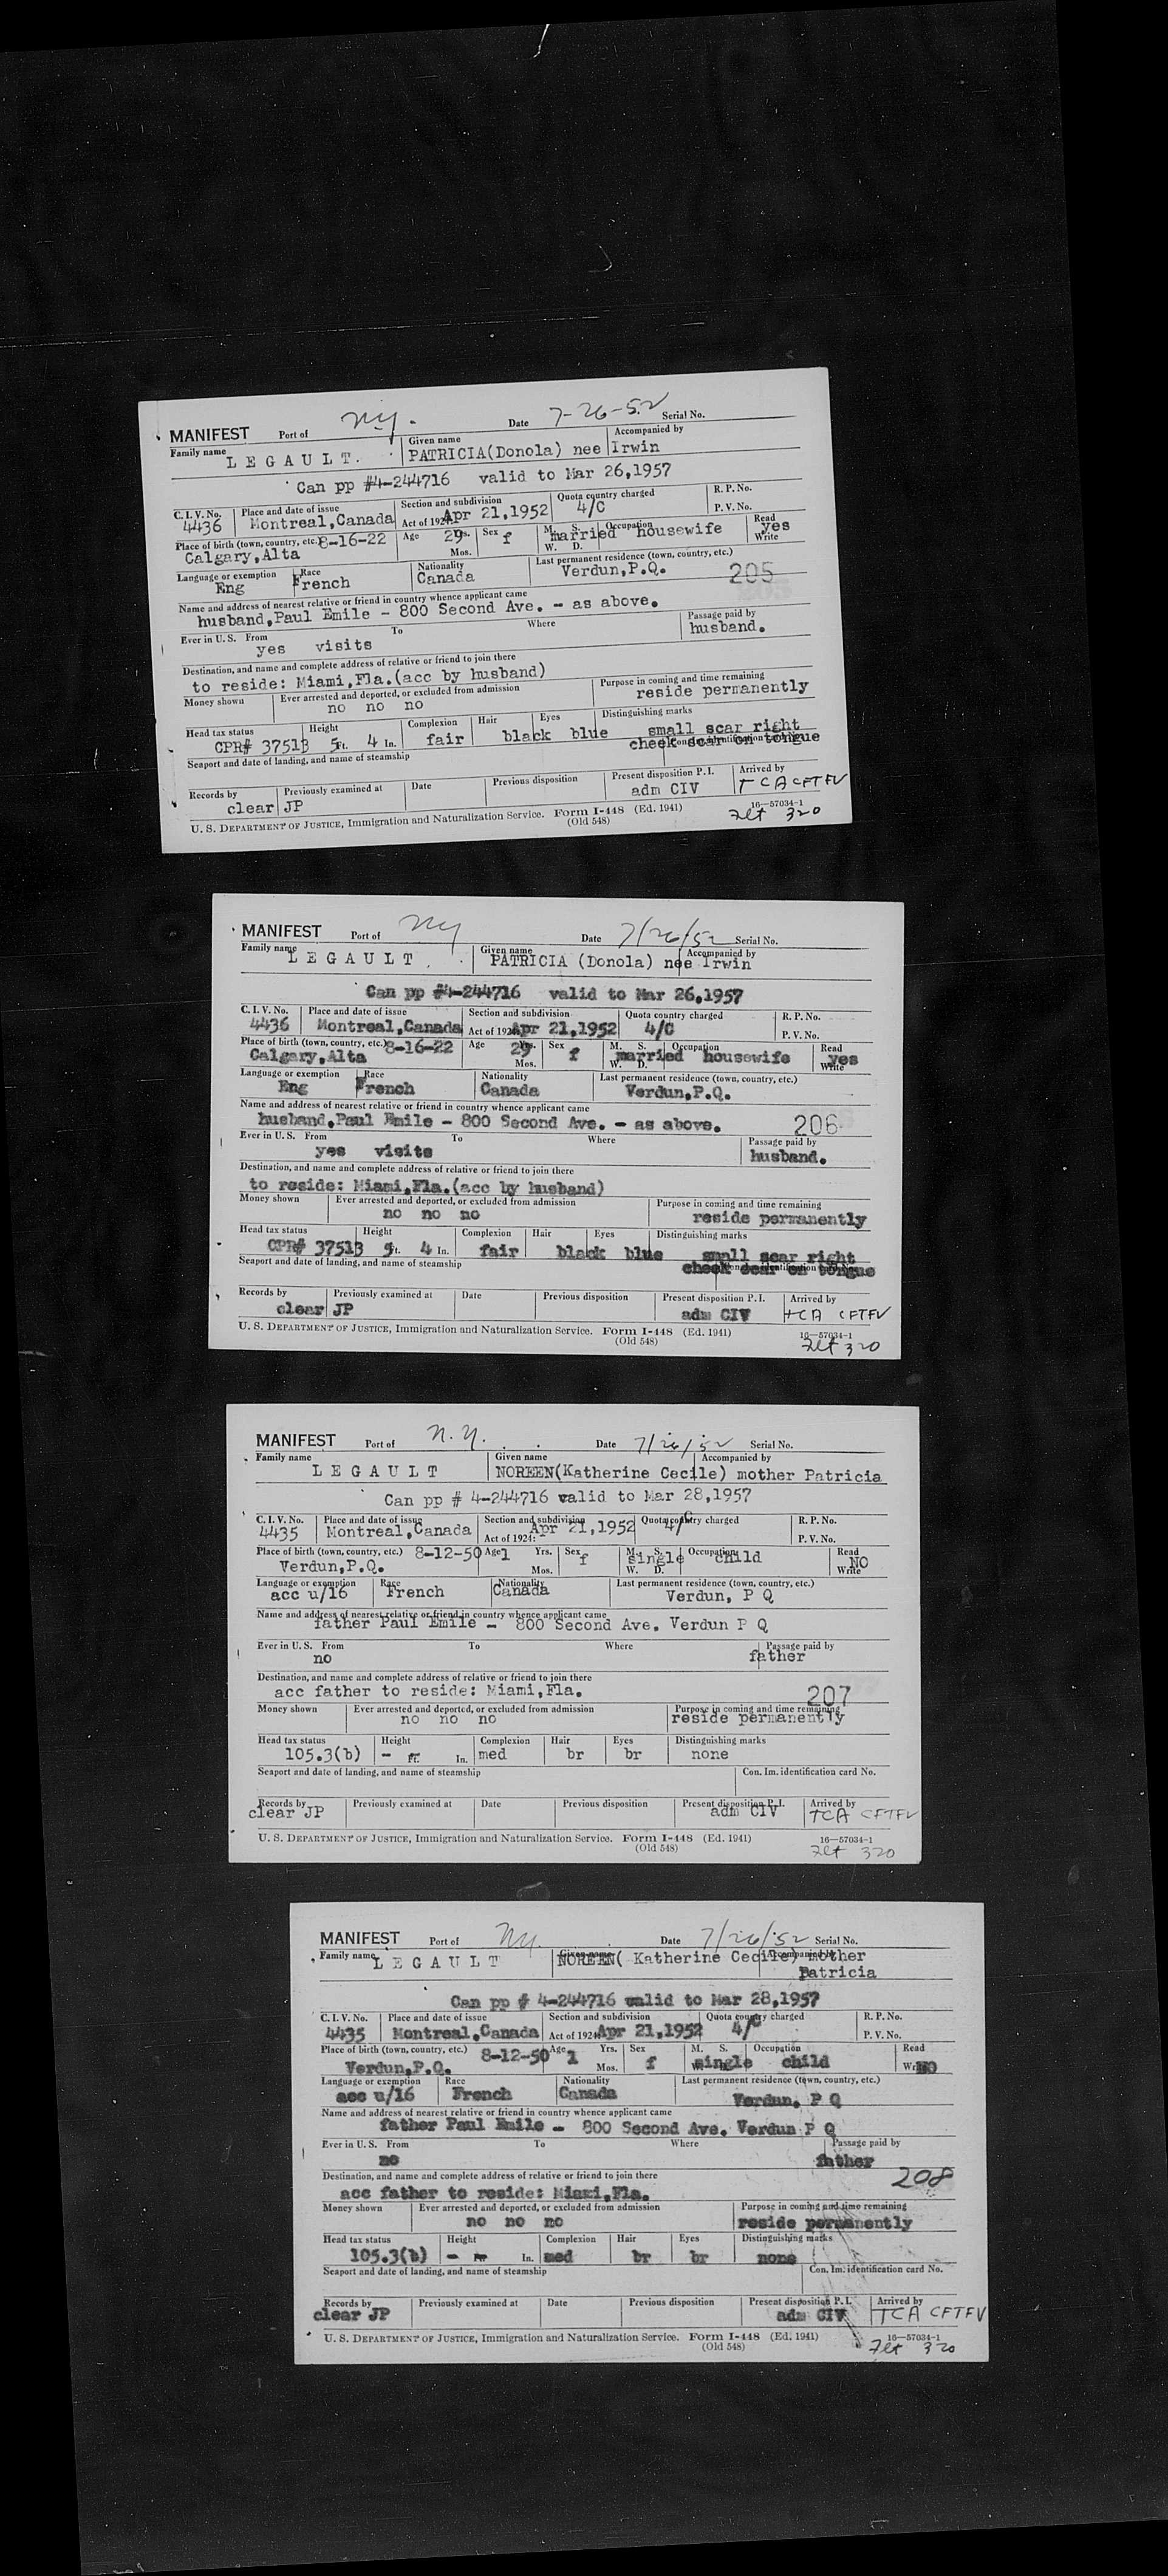 MANIFEST Port of N.Y. Date 7-26-52 Serial No.
Family name LEGAULT. Given name PATRICIA(Donola) nee Irwin Accompanied by
Can pp #4-244716 valid to Mar 26,1957
C. I. V. No. 4436 Place and date of issue Montreal,Canada Section and subdivision Act of 1924: Apr 21,1952 Quota country charged 4/C R. P. No. P. V. No.
Place of birth (town, country, etc.) 8-16-22 Calgary,Alta Age 29 Yrs. Mos. Sex f M. S. W. D. married Occupation housewife Read Write yes
Language or exemption Eng Race French Nationality Canada Last permanent residence (town, country, etc.) Verdun,P.Q. 205
Name and address of nearest relative or friend in country whence applicant came
husband,Paul Emile - 800 Second Ave. - as above.
Ever in U. S. From yes visits To Where Passage paid by husband.
Destination, and name and complete address of relative or friend to join there
to reside: Miami,Fla.(acc by husband)
Money shown Ever arrested and deported, or excluded from admission no no no Purpose in coming and time remaining reside permanently
Head tax status CPR# 37513 Height 5 Ft. 4 In. Complexion fair Hair black Eyes blue Distinguishing marks small scar right
cheek scar on tongue
Seaport and date of landing, and name of steamship Con. Im. identification card No.
Records by clear JP Previously examined at Date Previous disposition Present disposition P. I. adm CIV Arrived by TCA CFTFV
U. S. DEPARTMENT OF JUSTICE, Immigration and Naturalization Service. Form I-448 (Ed. 1941) 16—57034-1
(Old 548) Flt 320
MANIFEST Port of NY Date 7/26/52 Serial No.
Family name LEGAULT. Given name PATRICIA (Donola) nee Irwin Accompanied by
Can pp #4-244716 valid to Mar 26,1957
C. I. V. No. 4436 Place and date of issue Montreal,Canada Section and subdivision Act of 1924: Apr 21,1952 Quota country charged 4/C R. P. No. P. V. No.
Place of birth (town, country, etc.) 8-16-22 Calgary,Alta Age 29 Yrs. Mos. Sex f M. S. W. D. married Occupation housewife Read Write yes
Language or exemption Eng Race French Nationality Canada Last permanent residence (town, country, etc.) Verdun,P.Q.
Name and address of nearest relative or friend in country whence applicant came
husband,Paul Emile - 800 Second Ave. - as above. 206
Ever in U. S. From yes visits To Where Passage paid by husband.
Destination, and name and complete address of relative or friend to join there
to reside: Miami,Fla.(acc by husband)
Money shown Ever arrested and deported, or excluded from admission no no no Purpose in coming and time remaining reside permanently
Head tax status CPR# 37513 Height 5 Ft. 4 In. Complexion fair Hair black Eyes blue Distinguishing marks small scar right
cheek scar on tongue
Seaport and date of landing, and name of steamship Con. Im. identification card No.
Records by clear JP Previously examined at Date Previous disposition Present disposition P. I. adm CIV Arrived by TCA CFTFV
U. S. DEPARTMENT OF JUSTICE, Immigration and Naturalization Service. Form I-448 (Ed. 1941) 16—57034-1
(Old 548) Flt 320
MANIFEST Port of N.Y. Date 7/26/52 Serial No.
Family name LEGAULT Given name NOREEN(Katherine Cecile) Accompanied by mother Patricia
Can pp # 4-244716 valid to Mar 28,1957
C. I. V. No. 4435 Place and date of issue Montreal,Canada Section and subdivision Act of 1924: Apr 21,1952 Quota country charged 4/C R. P. No. P. V. No.
Place of birth (town, country, etc.) 8-12-50 Verdun,P.Q. Age 1 Yrs. Mos. Sex f M. S. W. D. single Occupation child Read Write NO
Language or exemption acc u/16 Race French Nationality Canada Last permanent residence (town, country, etc.) Verdun, P Q
Name and address of nearest relative or friend in country whence applicant came
father Paul Emile - 800 Second Ave. Verdun P Q
Ever in U. S. From no To Where Passage paid by father
Destination, and name and complete address of relative or friend to join there
acc father to reside: Miami,Fla. 207
Money shown Ever arrested and deported, or excluded from admission no no no Purpose in coming and time remaining reside permanently
Head tax status 105.3(b) Height - Ft. In. Complexion med Hair br Eyes br Distinguishing marks none
Seaport and date of landing, and name of steamship Con. Im. identification card No.
Records by clear JP Previously examined at Date Previous disposition Present disposition P. I. adm CIV Arrived by TCA CFTFV
U. S. DEPARTMENT OF JUSTICE, Immigration and Naturalization Service. Form I-448 (Ed. 1941) 16—57034-1
(Old 548) Flt 320
MANIFEST Port of NY. Date 7/26/52 Serial No.
Family name LEGAULT Given name NOREEN( Katherine Cecile) Accompanied by mother
Patricia
Can pp # 4-244716 valid to Mar 28,1957
C. I. V. No. 4435 Place and date of issue Montreal,Canada Section and subdivision Act of 1924: Apr 21,1952 Quota country charged 4/C R. P. No. P. V. No.
Place of birth (town, country, etc.) 8-12-50 Verdun,P.Q. Age 1 Yrs. Mos. Sex f M. S. W. D. single Occupation child Read Write NO
Language or exemption acc u/16 Race French Nationality Canada Last permanent residence (town, country, etc.) Verdun, P Q
Name and address of nearest relative or friend in country whence applicant came
father Paul Emile - 800 Second Ave. Verdun P Q
Ever in U. S. From no To Where Passage paid by father
Destination, and name and complete address of relative or friend to join there 208
acc father to reside: Miami,Fla.
Money shown Ever arrested and deported, or excluded from admission no no no Purpose in coming and time remaining reside permanently
Head tax status 105.3(b) Height - Ft. In. Complexion med Hair br Eyes br Distinguishing marks none
Seaport and date of landing, and name of steamship Con. Im. identification card No.
Records by clear JP Previously examined at Date Previous disposition Present disposition P. I. adm CIV Arrived by TCA CFTFV
U. S. DEPARTMENT OF JUSTICE, Immigration and Naturalization Service. Form I-448 (Ed. 1941) 16—57034-1
(Old 548) Flt 320